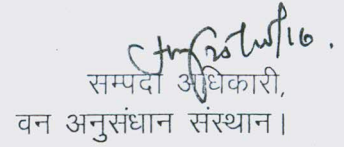 सम्पदा अधिकारी,
वन अनुसंधान संस्थान।